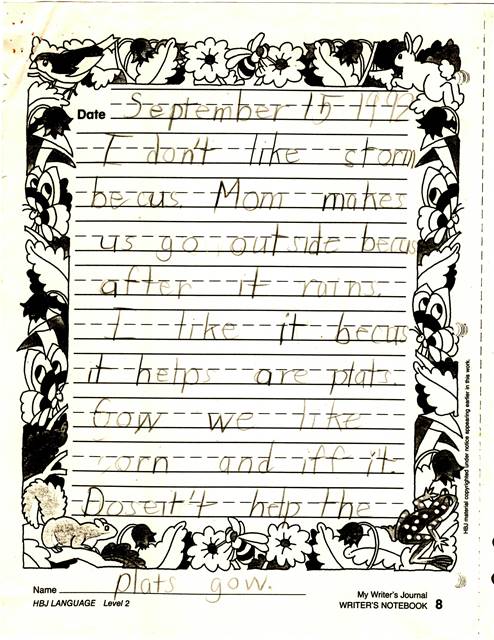 Date September 15 1992
I don't like storm
becus Mom makes
us go outside becus
after it rains.
I like it becus
it helps are plats.
Gow we like
corn and iff it
Doseit't help the
plats gow.
Name
HBJ LANGUAGE Level 2
My Writer's Journal
WRITER'S NOTEBOOK 8
HBJ material copyrighted under notice appearing earlier in this work.